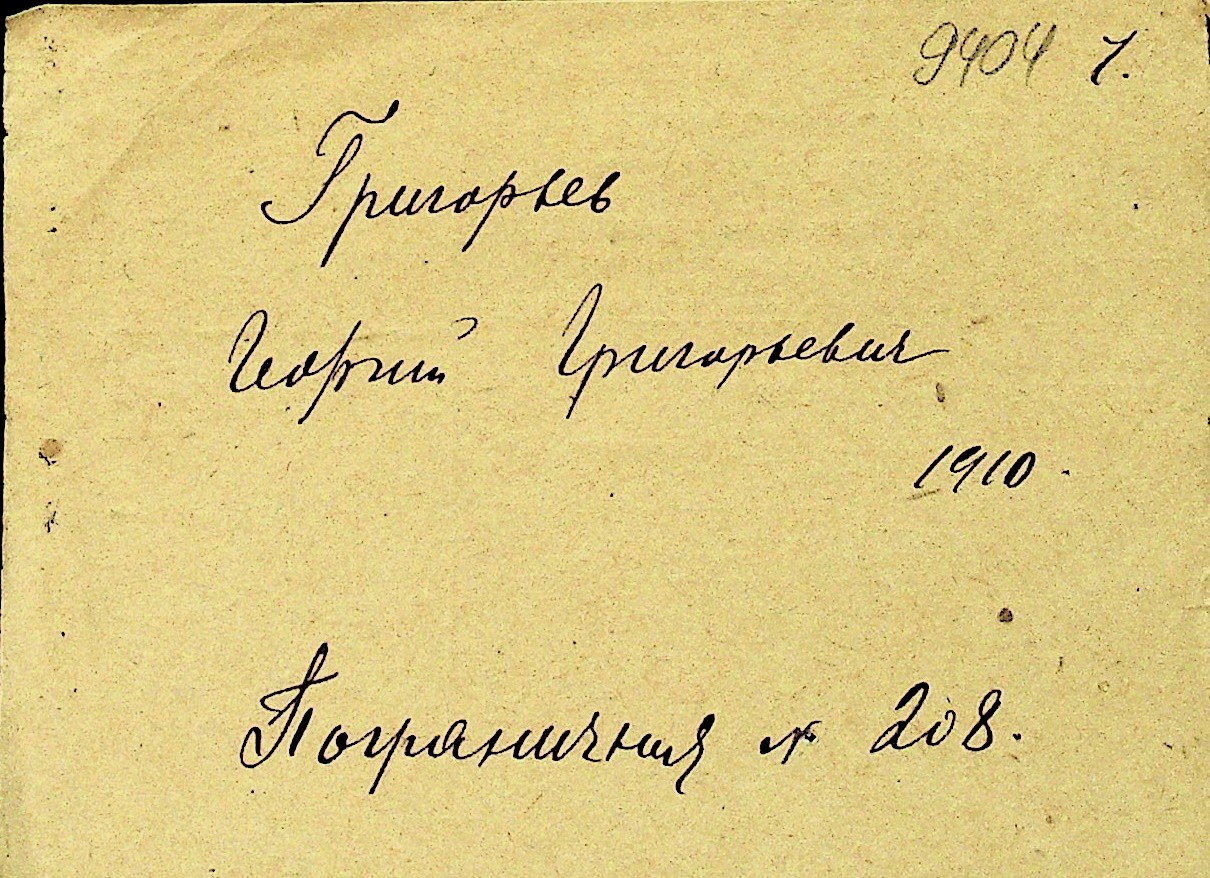 9404 1.
Григорьев
Георгий Григорьевич
1910.
Пограничная № 208.